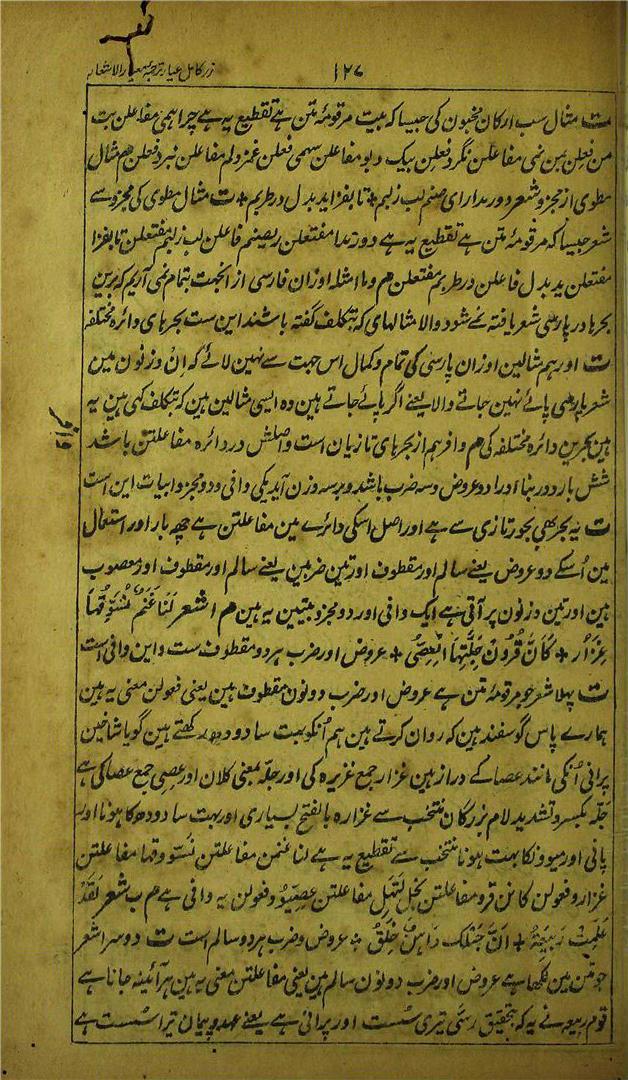 زر کامل عیار ترجمہ معیار الاشعار
۱۲۷
ت مثال سب ارکان مخبون کی جیسا کہ بیت مرقومہ متن ہے تقطیع یہ ہے چراہمی مفاعلن بت
من فعلن بمن نمی مفاعلن نگرد فعلن بیک دبو مفاعلن سہمی فعلن غمزدلم مفاعلن نبرد فعلن هم مثال
مطوی از مجزو شعر دور مدار ای صنم لب زلبم + تا بفزاید بدل در طربم + ت مثال مطوی کی مجزو سے
شعر جیسا کہ مرقومہ متن ہے تقطیع یہ ہے دور مدا مفتعلن ریصنم فاعلن لب زلبم مفتعلن تا بفزا
مفتعلن ید بدل فاعلن در طربم مفتعلن هم و ما امثلہ اوزان فارسی از انجہت بتمام نمی آریم کہ برین
بحرها در پارسی شعر یافتہ نمے شود و الا مثالهای کہ بتکلف گفتہ باشند این ست بحرهای دائرہ مختلفہ
ت اور ہم مثالین اوزان پارسی کی تمام و کمال اس جہت سے نہین لائے کہ ان وزنون مین
شعر پارسی پائے نہین جاتے والا یعنے اگر پائے جاتے ہین وہ ایسی مثالین ہین کہ بتکلف کہی ہین یہ
ہین بحرین دائرہ مختلفہ کی هم وافر هم از بحرهای تازیان است و اصلش در دائرہ مفاعلتن باشد
شش بار و در بنا او را دو عروض و سہ ضرب باشد و بر سہ وزن آید یکی وافی و دو مجزو و ابیات این است
ت یہ بحر بھی بحور تازی سے ہے اور اصل اسکی دائرے مین مفاعلتن ہے چھ بار اور استعمال
مین اُسکے دو عروض یعنے سالم اور مقطوف اور تین ضربین یعنے سالم اور مقطوف اور معصوب
ہین اور تین وزنون پر آتی ہے ایک وافی اور دو مجزو بیتین یہ ہین هم ا شعر لَنَا غَنَمٌ نُسَوِّقُهَا
غِزَارٌ + كَأَنَّ قُرُونَ جِلَّتِهَا الْعِصِيُّ + عروض اور ضرب هر دو مقطوف ست و این وافی است
ت پہلا شعر جو مرقومہ متن ہے عروض اور ضرب دونون مقطوف ہین یعنی فعولن معنی یہ ہین
ہمارے پاس گوسفند ہین کہ روان کرتے ہین ہم اُنکو بہت سا دودھ رکھتے ہین گویا شاخین
پرانی اُنکی مانند عصا کے دراز ہین غزار جمع غزیرہ کی اور جلہ بمعنی کلان اور عصی جمع عصا کی ہے
جلہ بکسر و تشدید لام بزرگان منتخب سے غزارہ بالفتح بسیاری اور بہت سا دودھ کا ہونا اور
پانی اور میوونکا بہت ہونا منتخب سے تقطیع یہ ہے لنا غنمن مفاعلتن نسووقها مفاعلتن
غزارو فعولن کانن قرو مفاعلتن نجللتہل مفاعلتن عصییو فعولن یہ وافی ہے هم ب شعر لَقَدْ
عَلِمَتْ رَبِيعَةُ + أَنَّ حَبْلَكَ وَاهِنٌ خَلَقٌ + عروض و ضرب هر دو سالم است ت دوسرا شعر
جو متن مین لکھا ہے عروض اور ضرب دونون سالم ہین یعنی مفاعلتن معنی یہ ہین ہر آئینہ جانا ہے
قوم ربیعہ نے یہ کہ بتحقیق رسّی تیری سُست اور پرانی ہے یعنے عہد و پیمان تیرا سُست ہے